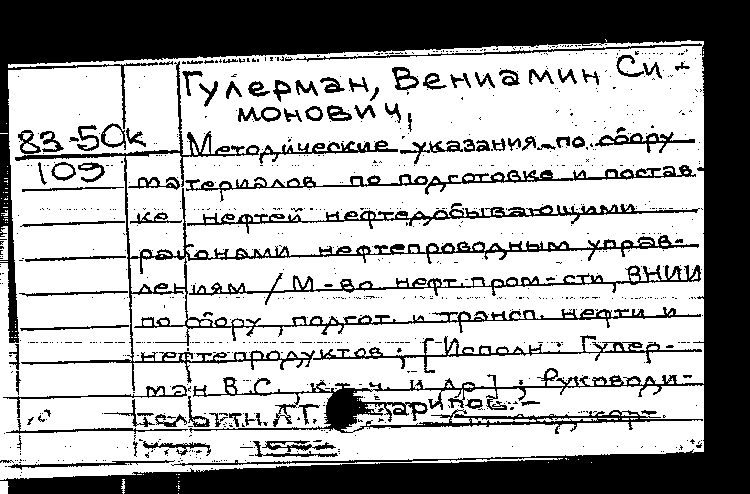 Гулерман, Вениамин Си-
монович,
83-50к
109
Методические указания по сбору
материалов по подготовке и постав-
ке нефтей нефтедобывающими
районами нефтепроводным управ-
лениям / М-во нефт. пром-сти, ВНИИ
по сбору, подгот. и трансп. нефти и
нефтепродуктов; [Исполн.: Гулер-
ман В.С., к.т.н. и др.]; Руководи-
тель А.Г.
См. след. карт.